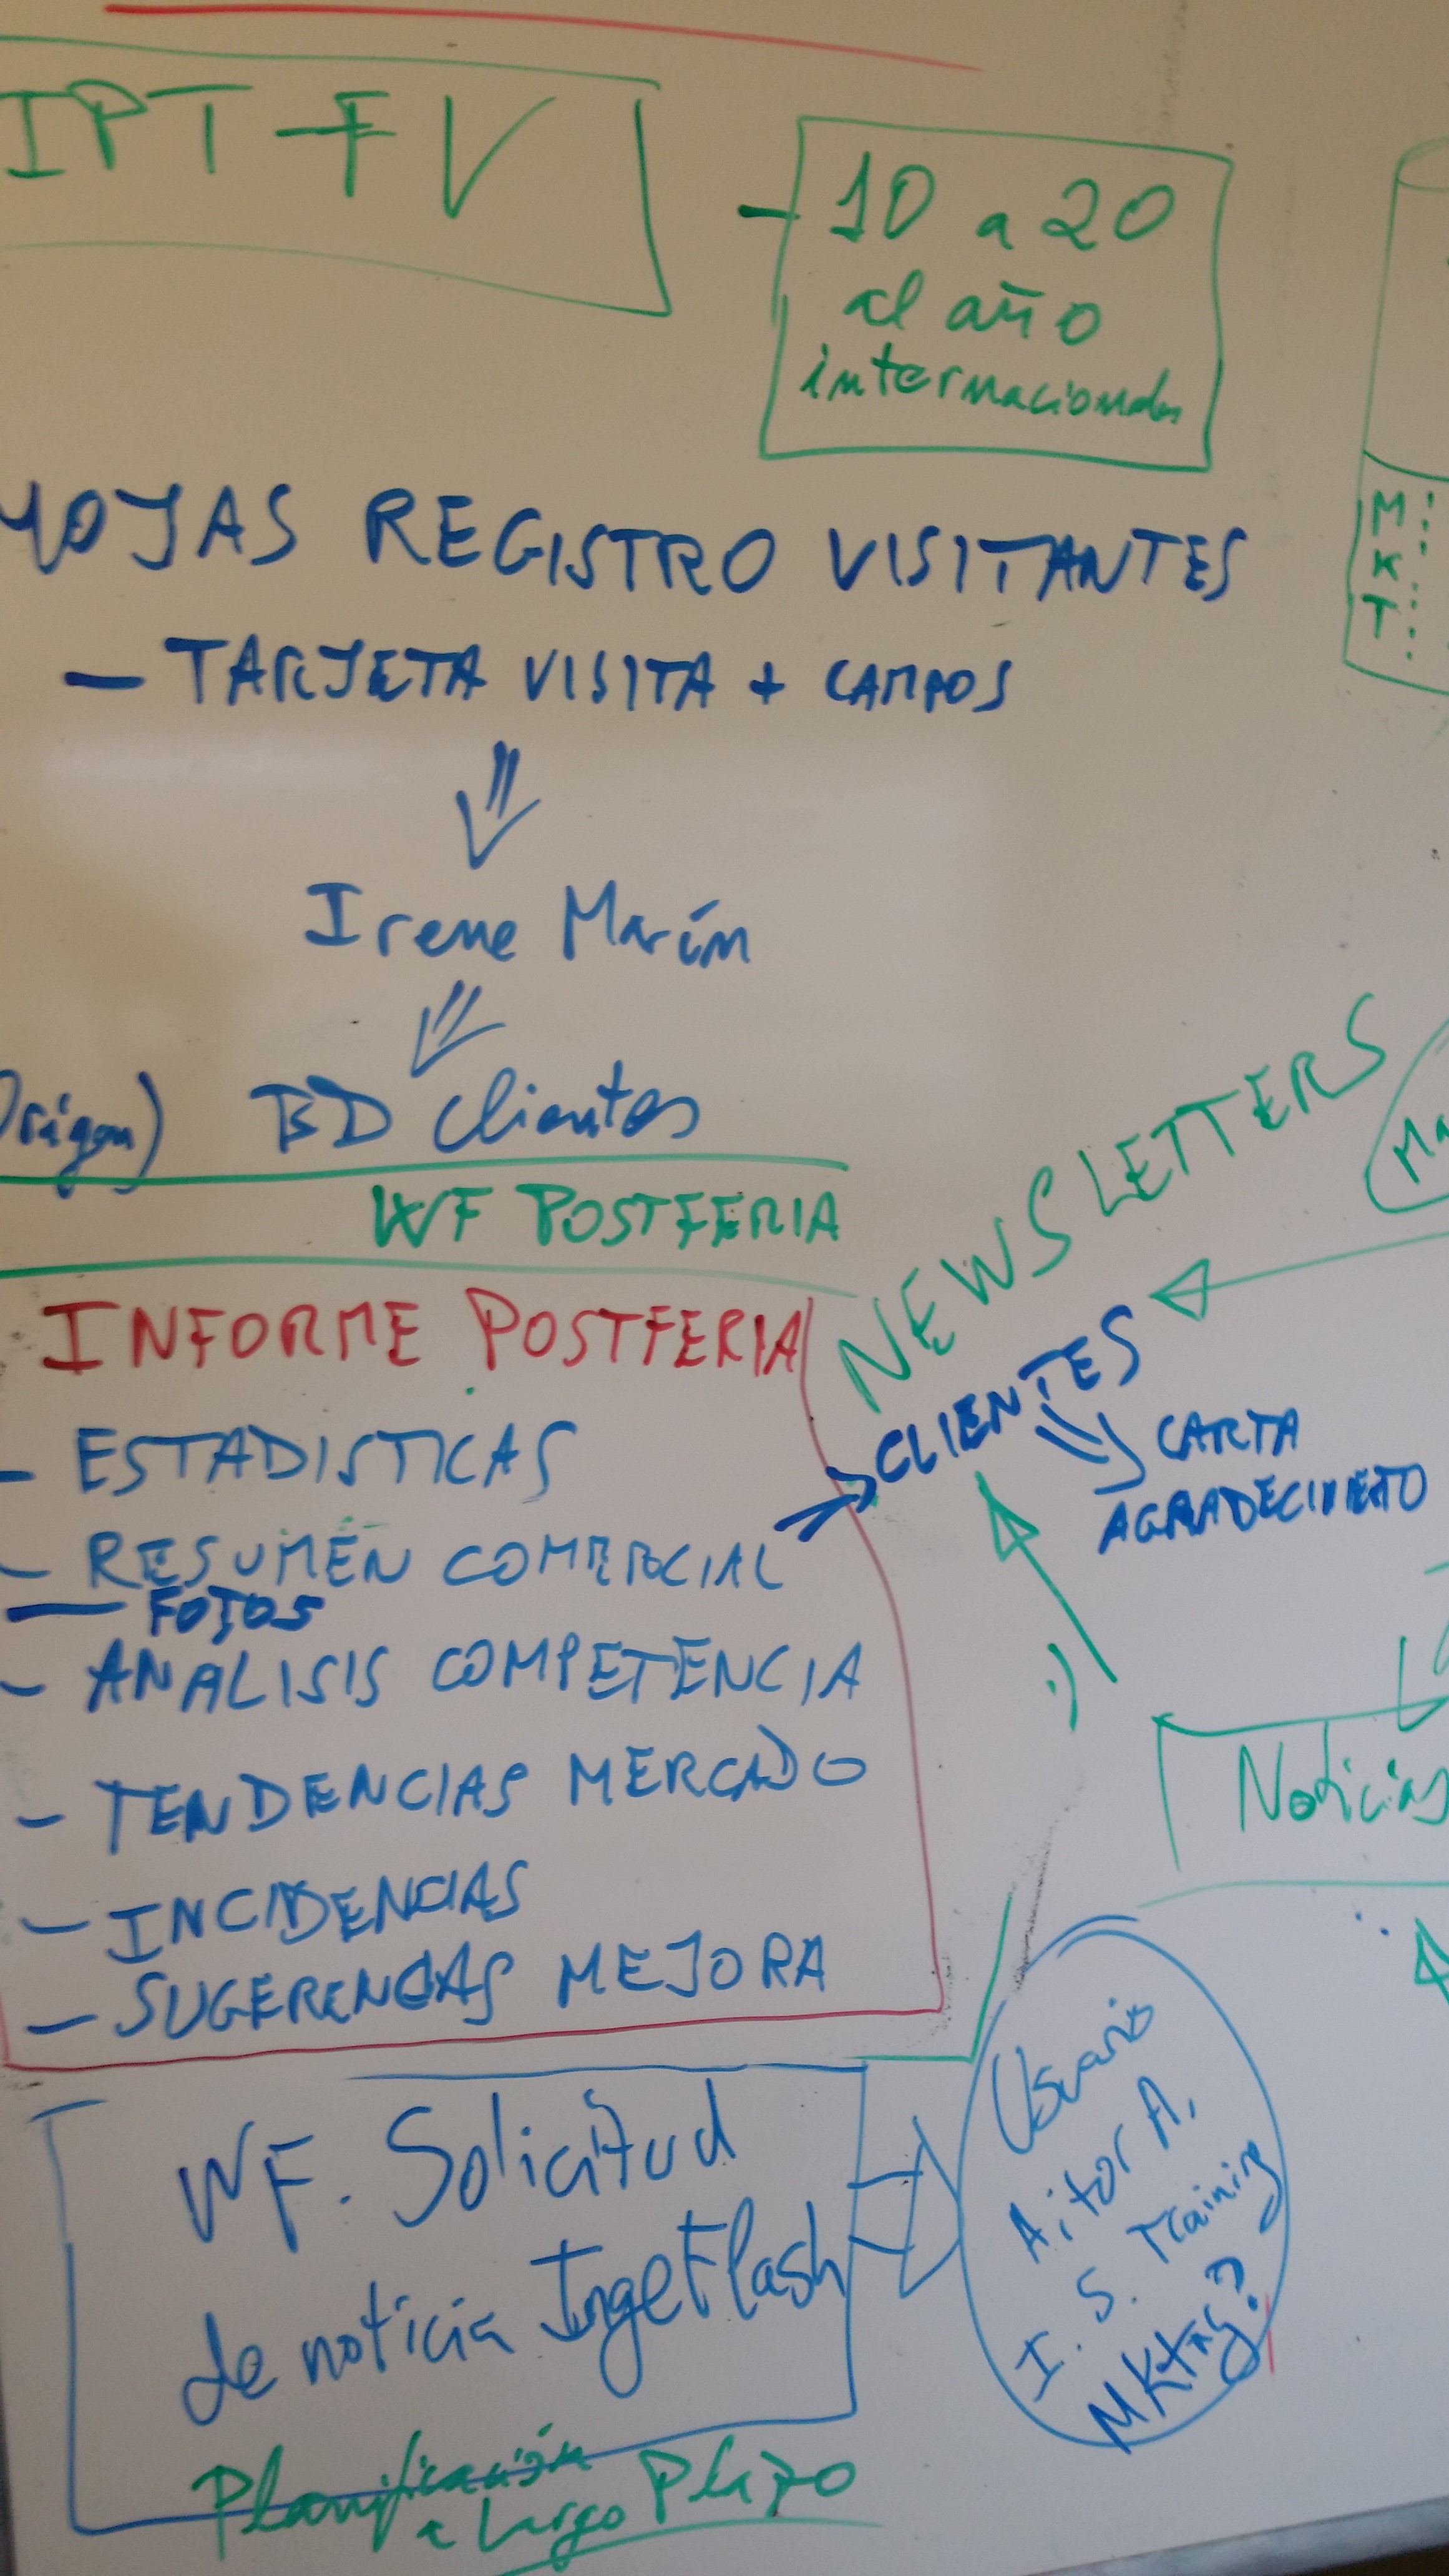 IPT-FV
- 10 a 20
al año
internacionales
HOJAS REGISTRO VISITANTES
- TARJETA VISITA + CAMPOS
M
K
T
Irene Marín
Origen) BD Clientes
WF POSTFERIA
NEWSLETTERS
Ma
INFORME POSTFERIA
- ESTADISTICAS
- RESUMEN COMERCIAL
- FOTOS
- ANALISIS COMPETENCIA
- TENDENCIAS MERCADO
- INCIDENCIAS
- SUGERENCIAS MEJORA
CLIENTES
CARTA
AGRADECIMIETO
Noticias
WF. Solicitud
de noticia IngeFlash
Planificación
a Largo Plazo
Usuario
Aitor A.
I. S. Training
MKtng?